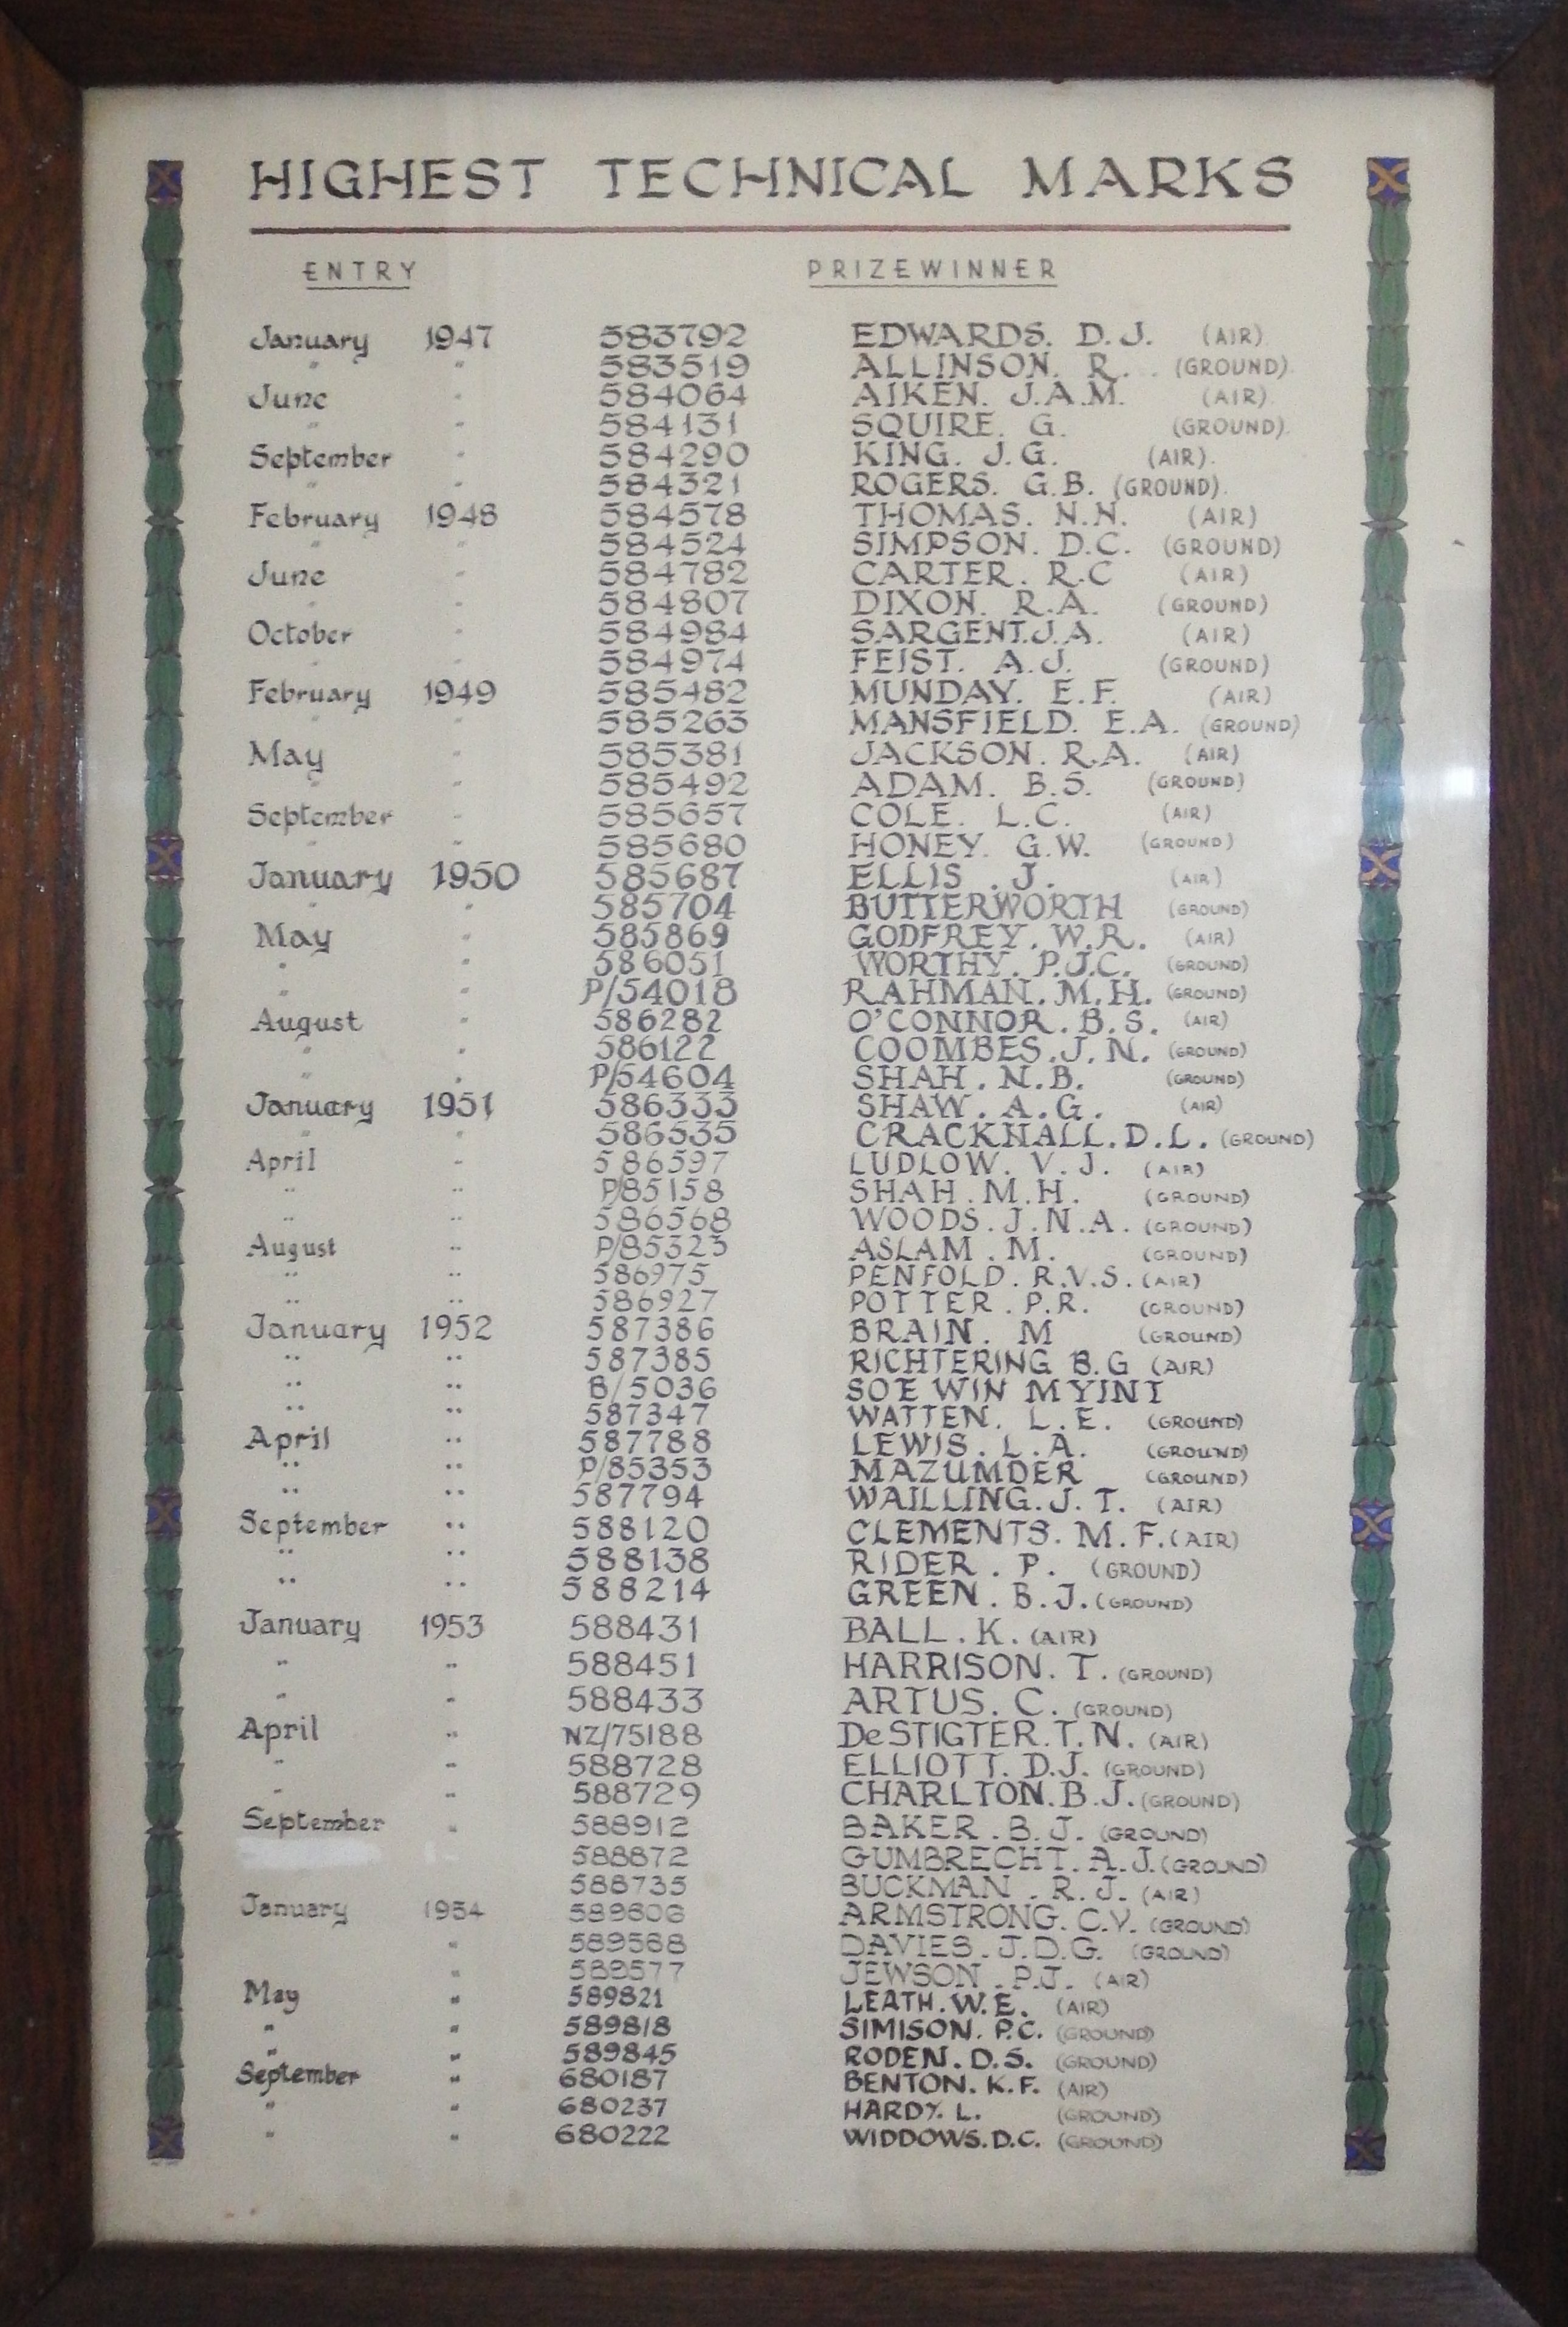 HIGHEST TECHNICAL MARKS
ENTRY PRIZEWINNER
January 1947 583792 EDWARDS. D.J. (AIR)
" " 583519 ALLINSON. R. (GROUND)
June " 584064 AIKEN. J.A.M. (AIR)
" " 584131 SQUIRE. G. (GROUND)
September " 584290 KING. J.G. (AIR)
" " 584321 ROGERS. G.B. (GROUND)
February 1948 584578 THOMAS. N.N. (AIR)
" " 584524 SIMPSON. D.C. (GROUND)
June " 584782 CARTER. R.C (AIR)
" " 584807 DIXON. R.A. (GROUND)
October " 584984 SARGENT. J.A. (AIR)
" " 584974 FEIST. A.J. (GROUND)
February 1949 585482 MUNDAY. E.F. (AIR)
" " 585263 MANSFIELD. E.A. (GROUND)
May " 585381 JACKSON. R.A. (AIR)
" " 585492 ADAM. B.S. (GROUND)
September " 585657 COLE. L.C. (AIR)
" " 585680 HONEY. G.W. (GROUND)
January 1950 585687 ELLIS. J. (AIR)
" " 585704 BUTTERWORTH (GROUND)
May " 585869 GODFREY. W.R. (AIR)
" " 586051 WORTHY. P.J.C. (GROUND)
" " P/54018 RAHMAN. M.H. (GROUND)
August " 586282 O'CONNOR. B.S. (AIR)
" " 586122 COOMBES. J.N. (GROUND)
" " P/54604 SHAH. N.B. (GROUND)
January 1951 586333 SHAW. A.G. (AIR)
" " 586535 CRACKNALL. D.L. (GROUND)
April " 586597 LUDLOW. V.J. (AIR)
" " P/85158 SHAH. M.H. (GROUND)
" " 586568 WOODS. J.N.A. (GROUND)
August " P/85323 ASLAM. M. (GROUND)
" " 586975 PENFOLD. R.V.S. (AIR)
" " 586927 POTTER. P.R. (GROUND)
January 1952 587386 BRAIN. M (GROUND)
" " 587385 RICHTERING B.G (AIR)
" " B/5036 SOE WIN MYINT
" " 587347 WATTEN. L.E. (GROUND)
April " 587788 LEWIS. L.A. (GROUND)
" " P/85353 MAZUMDER (GROUND)
" " 587794 WAILLING. J.T. (AIR)
September " 588120 CLEMENTS. M.F. (AIR)
" " 588138 RIDER. P. (GROUND)
" " 588214 GREEN. B.J. (GROUND)
January 1953 588431 BALL. K. (AIR)
" " 588451 HARRISON. T. (GROUND)
" " 588433 ARTUS. C. (GROUND)
April " NZ/75188 DeSTIGTER. T.N. (AIR)
" " 588728 ELLIOTT. D.J. (GROUND)
" " 588729 CHARLTON. B.J. (GROUND)
September " 588912 BAKER. B.J. (GROUND)
588872 GUMBRECHT. A.J. (GROUND)
588735 BUCKMAN. R.J. (AIR)
January 1954 589606 ARMSTRONG. C.V. (GROUND)
" 589568 DAVIES. J.D.G. (GROUND)
" 589577 JEWSON. P.J. (AIR)
May " 589821 LEATH. W.E. (AIR)
" " 589818 SIMISON. P.C. (GROUND)
" " 589845 RODEN. D.S. (GROUND)
September " 680187 BENTON. K.F. (AIR)
" " 680237 HARDY. L. (GROUND)
" " 680222 WIDDOWS. D.C. (GROUND)